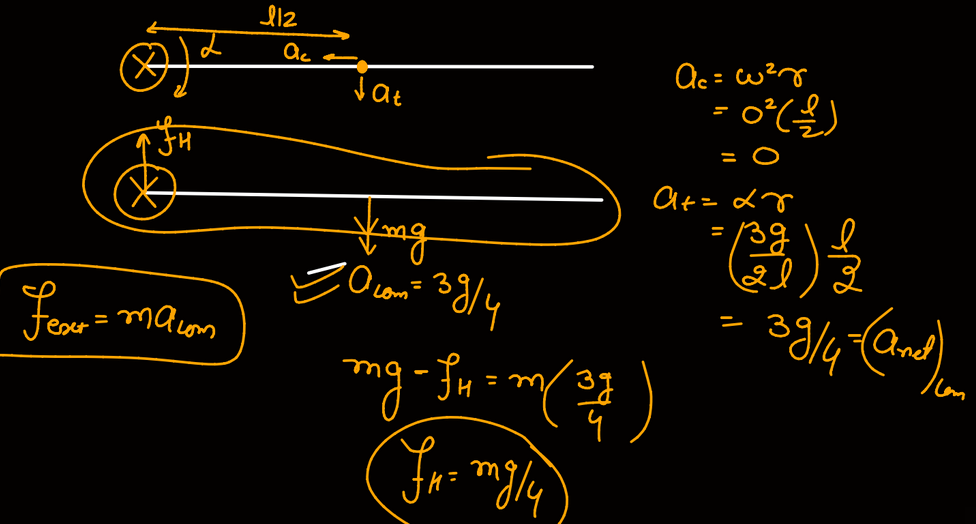 l/2
α
a_c
a_t
f_H
mg
a_com = 3g/4
f_ext = ma_com
mg - f_H = m(3g/4)
f_H = mg/4
a_c = ω²r
= 0²(l/2)
= 0
a_t = αr
= (3g/2l) l/2
= 3g/4 = (a_net)_com